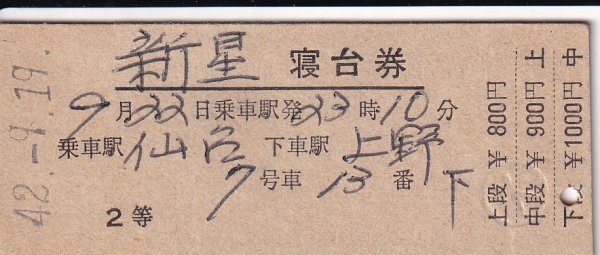 新星 寝台券
9月22日乗車駅発23時10分
乗車駅 仙台 下車駅 上野
7号車 13番 下
2等
42.-9.19.
上段 ¥ 800円
中段 ¥ 900円
下段 ¥1000円
上
中